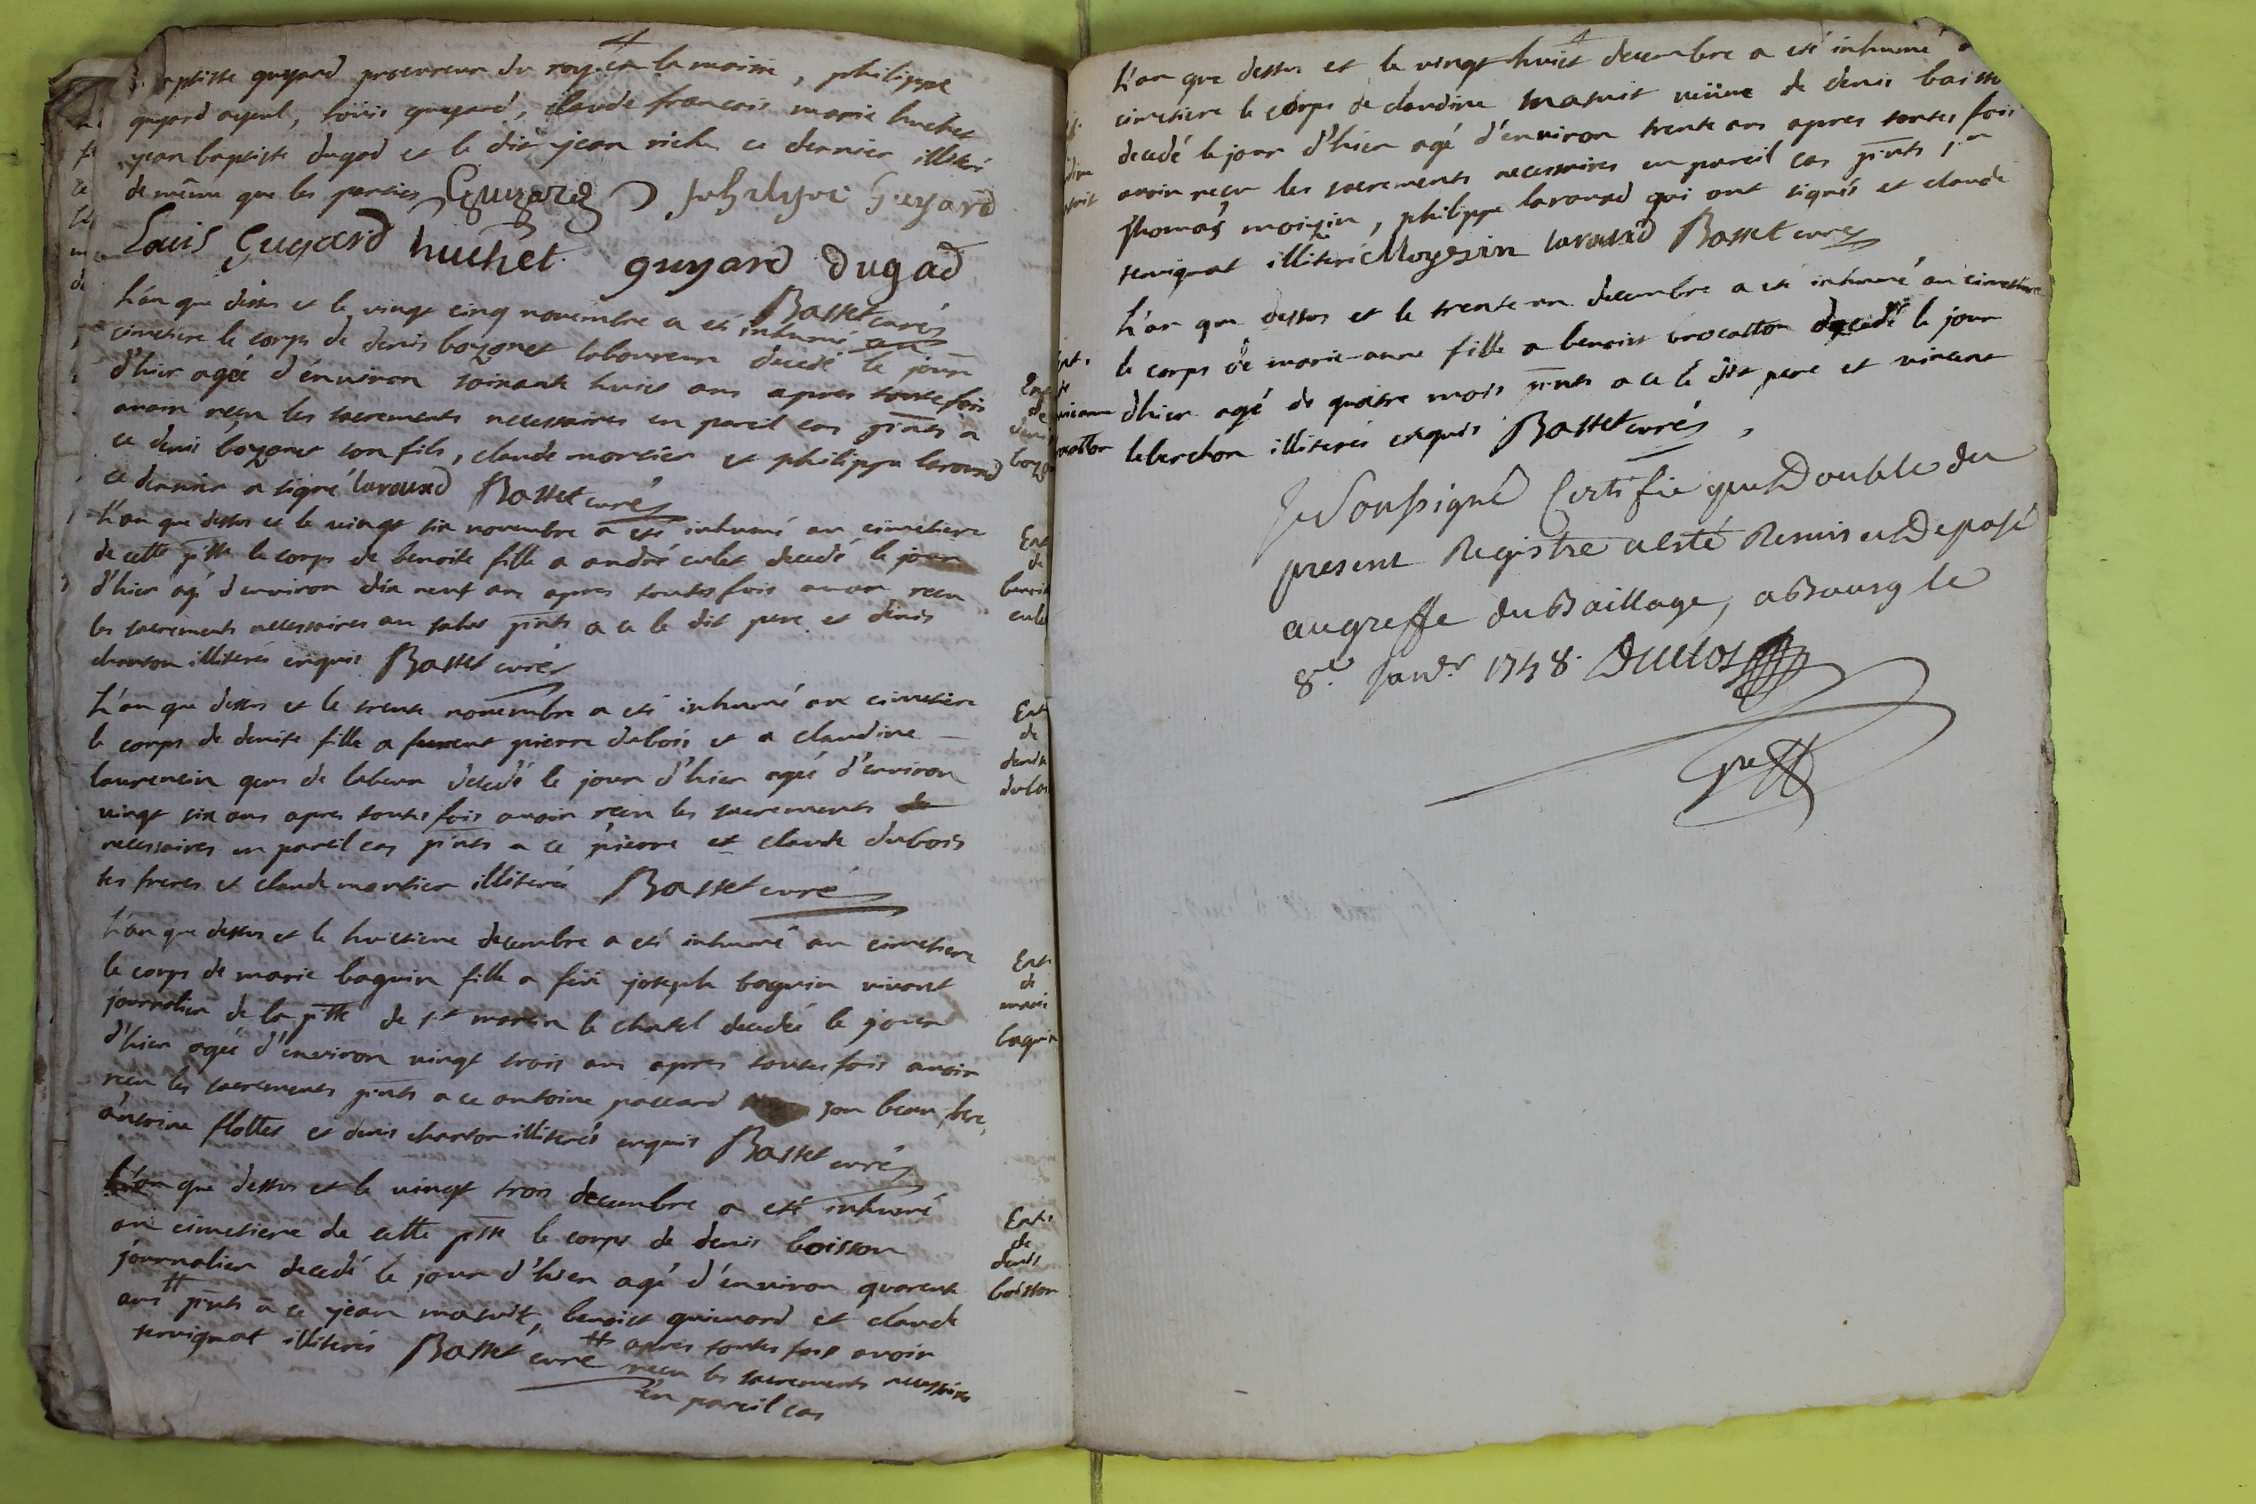 4
baptiste guyard procureur du roy en la mairie, philippe
guyard ayeul, louis guyard, claude francois marie huchet
jean baptiste dugad et le dit jean riche ce dernier illiteré
de même que les parties Guyard philipe Guyard
Louis Guyard huchet guyard dugad
Basset curé
L'an que dessus et le vingt cinq novembre a eté inhumé au
cimetiere le corps de denis boyonet laboureur decedé le jour
d'hier agée d'environ soixante huict ans apres toutefois
avoir reçu les sacrements necessaires en pareil cas pnts a
ce denis boyonet son fils, claude mortier et philippe laround
ce dernier a signé laround Basset curé
Ent
de
denis
boyo
L'an que dessus et le vingt six novembre a eté inhumé au cimetiere
de cette psse le corps de benoite fille a andré culet decedé le jour
d'hier agé d'environ dix neuf ans apres toutesfois avoir recu
les sacrements necessaires au salut pnts a ce le dit pere et denis
charton illiterés enquis Basset curé
Ent
de
benoit
cule
L'an que dessus et le trente novembre a eté inhumé au cimetiere
le corps de denise fille a furent pierre dubois et a claudine
laurencin gens de labeur decedé le jour d'hier agée d'environ
vingt six ans apres toutesfois avoir reçu les sacrements de
necessaires en pareil cas pnts a ce pierre et claude dubois
ses freres et claude mortier illiterés Basset curé
Ent
de
denise
dubo
L'an que dessus et le huictieme decembre a eté inhumé au cimetiere
le corps de marie baguin fille a feu joseph baguin vivant
journalier de la psse de st martin le chatel decedée le jour
d'hier agée d'environ vingt trois ans apres toutesfois avoir
reçu les sacrements pnts a ce antoine paccard son beau frere,
antoine flottet et denis charton illiterés enquis Basset curé
Ent
de
marie
baguin
L'an que dessus et le vingt trois decembre a eté inhumé
au cimetiere de cette psse le corps de denis boisson
journalier decedé le jour d'hier agé d'environ quarente
ans # pnts a ce jean masuit, benoict guinard et claude
servignat illiterés Basset curé # apres toutes fois avoir
reçu les sacrements necessaires
en pareil cas
Ent.
de
denis
boisson
L'an que dessus et le vingt huict decembre a eté inhumé
cimetiere le corps de claudine masuit veüve de denis boisso
decedé le jour d'hier agé d'environ trente ans apres toutes fois
avoir reçu les sacrements necessaires en pareil cas pnts
thomas moissin, philippe laround qui ont signés et claude
servignat illiteré Moyssin laround Basset curé
L'an que dessus et le trente un decembre a eté inhumé au cimetiere
le corps de marie-anne fille a benoist brocattor decedé le jour
d'hier agé de quatre mois pnts a ce le dit pere et vincent
leberchon illiterés enquis Basset curé
Je Soussigné Certifie que le Double du
present Registre a esté Remis et Deposé
au greffe du Baillage, a Bourg le
8e. Janer. 1748. Duclos
greff